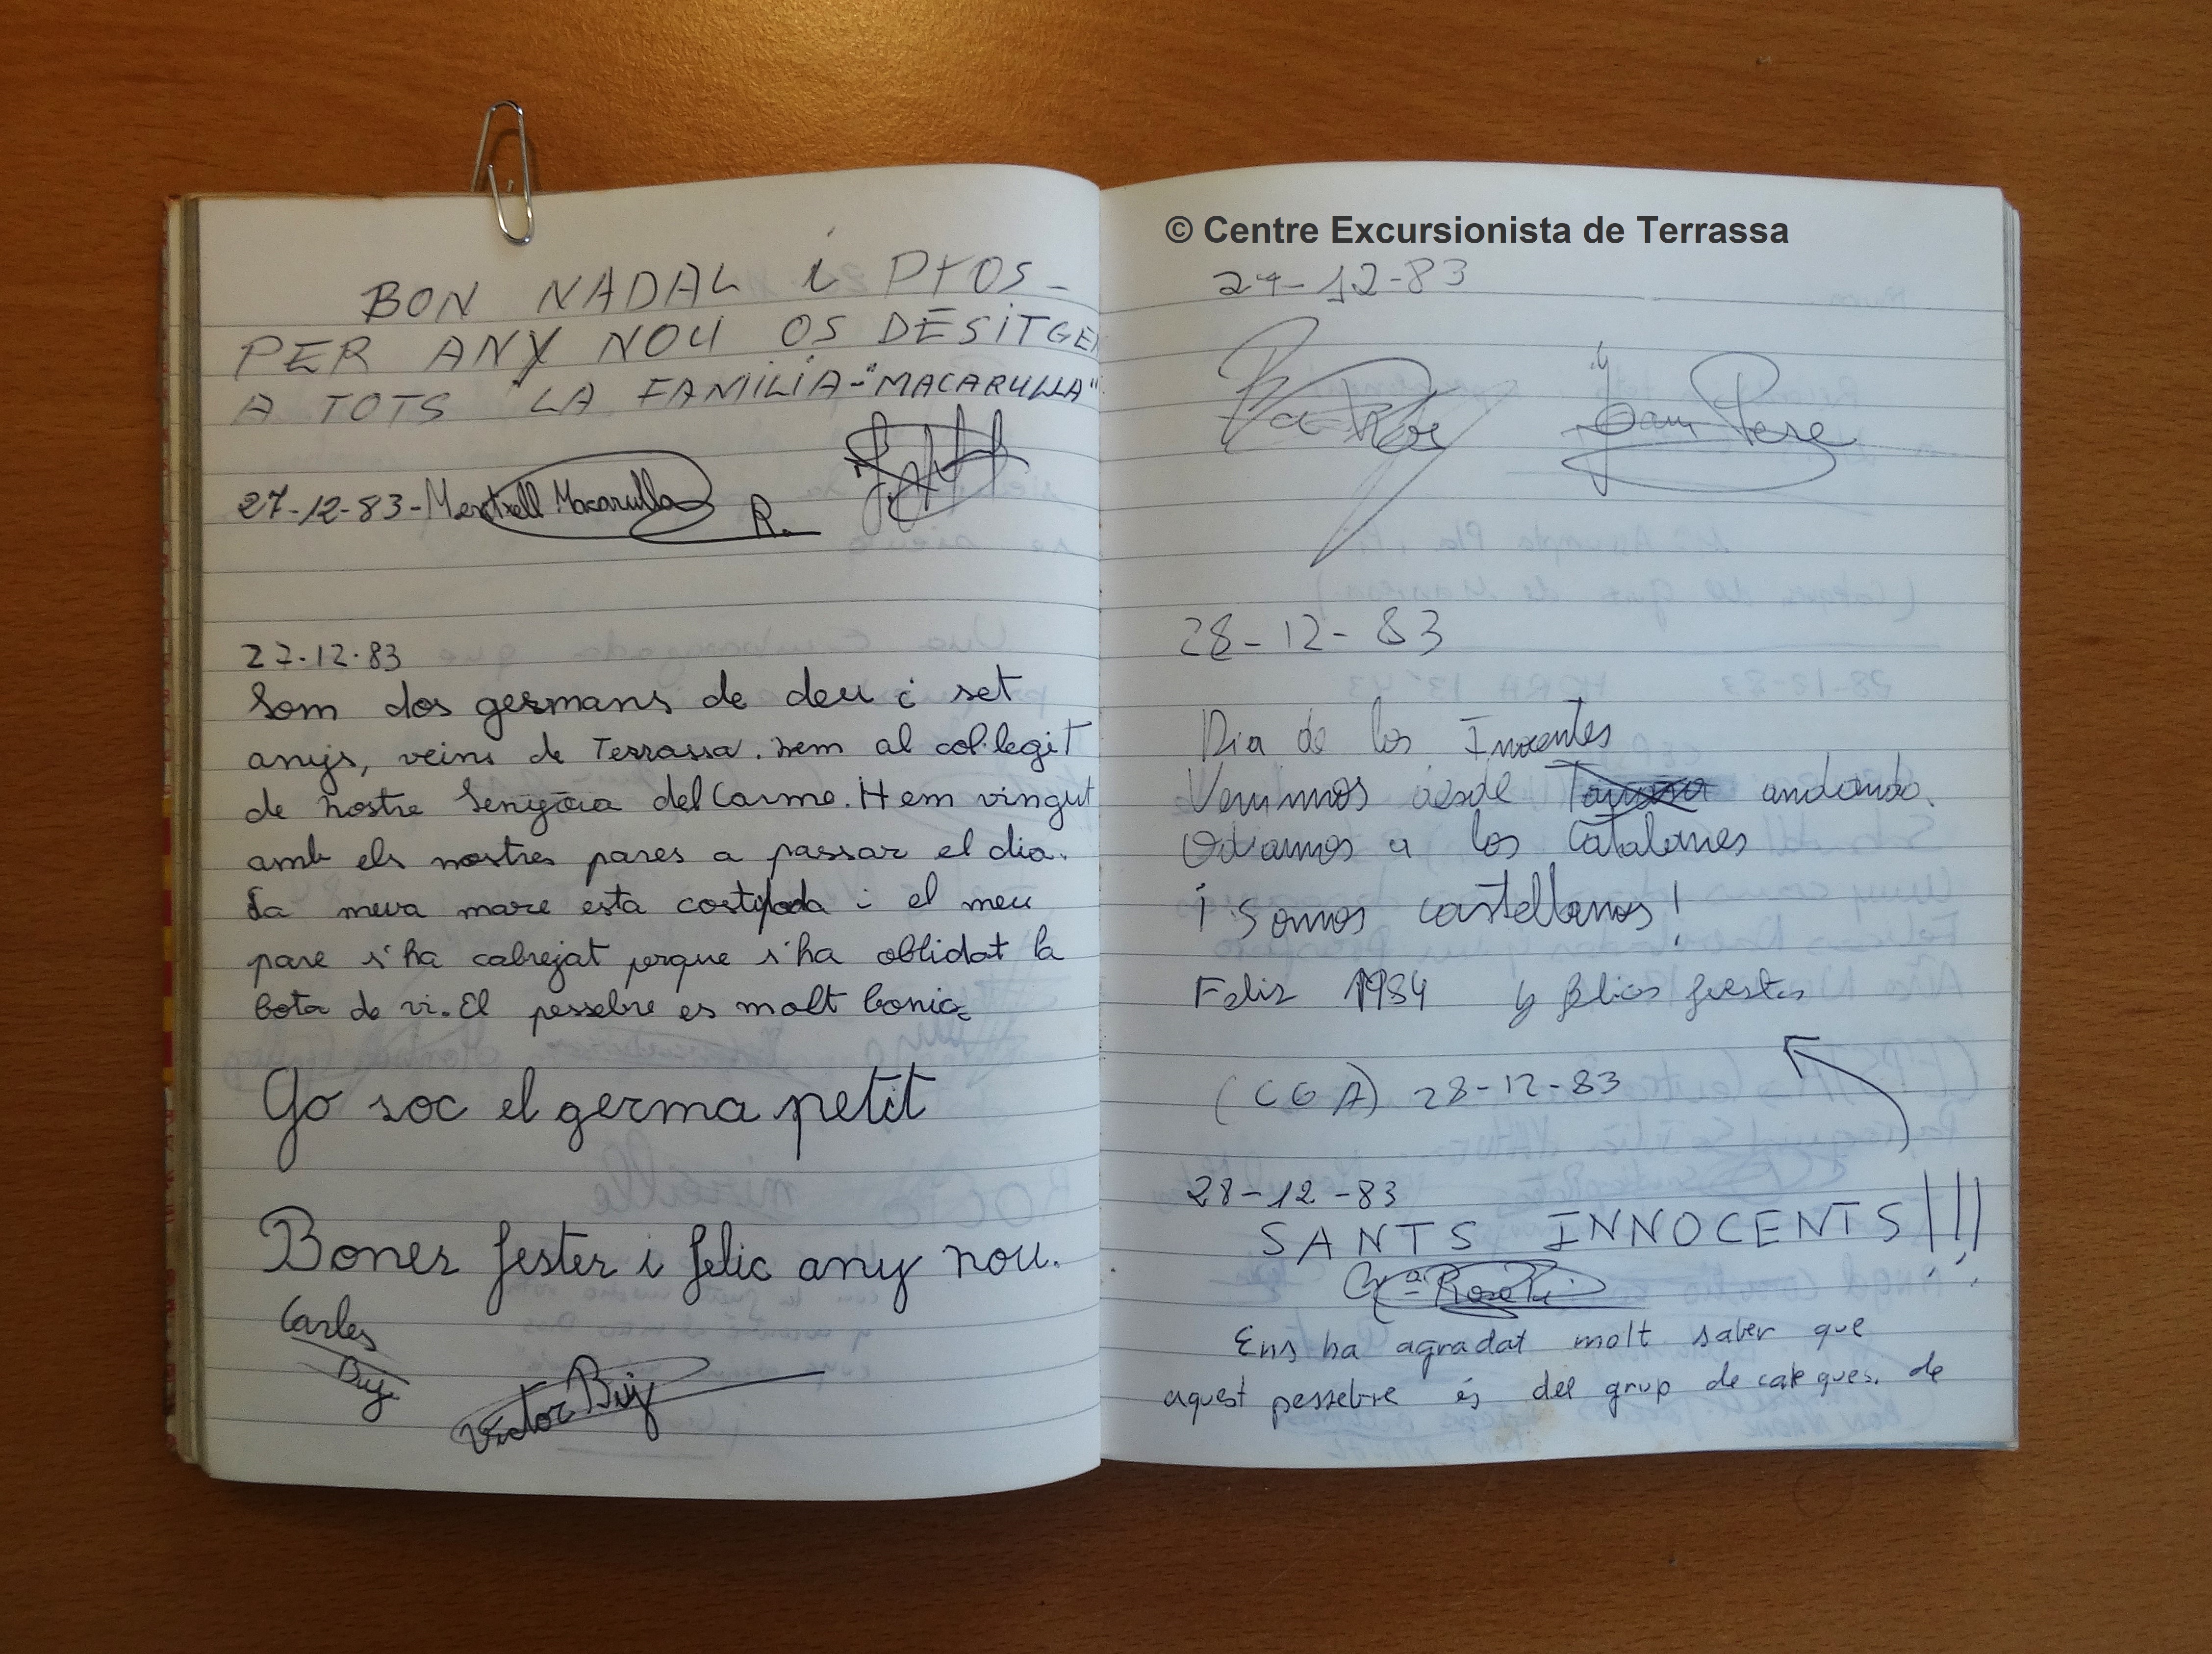 BON NADAL i PROS-
PER ANY NOU OS DESITGEN
A TOTS "LA FAMILIA-"MACARULLA"
27-12-83-Meritxell Macarulla R.
27.12.83
Som dos germans de deu i set
anys, veins de Terrassa. nem al col·legit
de nostre Senyora del Carme. Hem vingut
amb els nostres pares a passar el dia.
La meva mare esta costipada i el meu
pare s'ha cabrejat perque s'ha oblidat la
bota de vi. El pessebre es molt bonic
Yo soc el germa petit
Bones festes i felic any nou.
Carles
Buj
Victor Buj
© Centre Excursionista de Terrassa
27-12-83
Joan Pere
28-12-83
Dia de los Inocentes
Venimos desde andando.
Odiamos a los Catalanes
¡Somos castellanos!
Feliz 1984 y felices fiestas
(CGA) 28-12-83
28-12-83
SANTS INNOCENTS!!!
Ens ha agradat molt saber que
aquest pessebre és del grup de cate ques. de